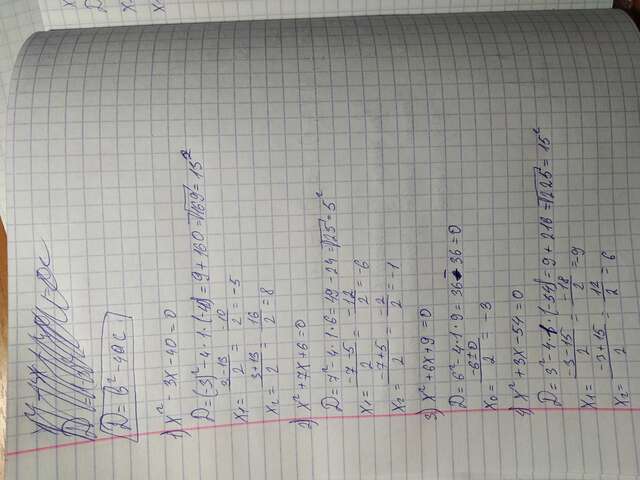 D = b² - 4ac
1) x² - 3x - 40 = 0
D = (3)² - 4 · 1 · (-40) = 9 + 160 = √169 = 13²
x₁ = 3-13/2 = -10/2 = -5
x₂ = 3+13/2 = 16/2 = 8
2) x² + 7x + 6 = 0
D = 7² - 4 · 1 · 6 = 49 - 24 = √25 = 5²
x₁ = -7-5/2 = -12/2 = -6
x₂ = -7+5/2 = -2/2 = -1
3) x² + 6x + 9 = 0
D = 6² - 4 · 1 · 9 = 36 - 36 = 0
x₀ = -6±0/2 = -3
4) x² + 3x - 54 = 0
D = 3² - 4 · 1 · (-54) = 9 + 216 = √225 = 15²
x₁ = -3-15/2 = -18/2 = -9
x₂ = -3+15/2 = 12/2 = 6